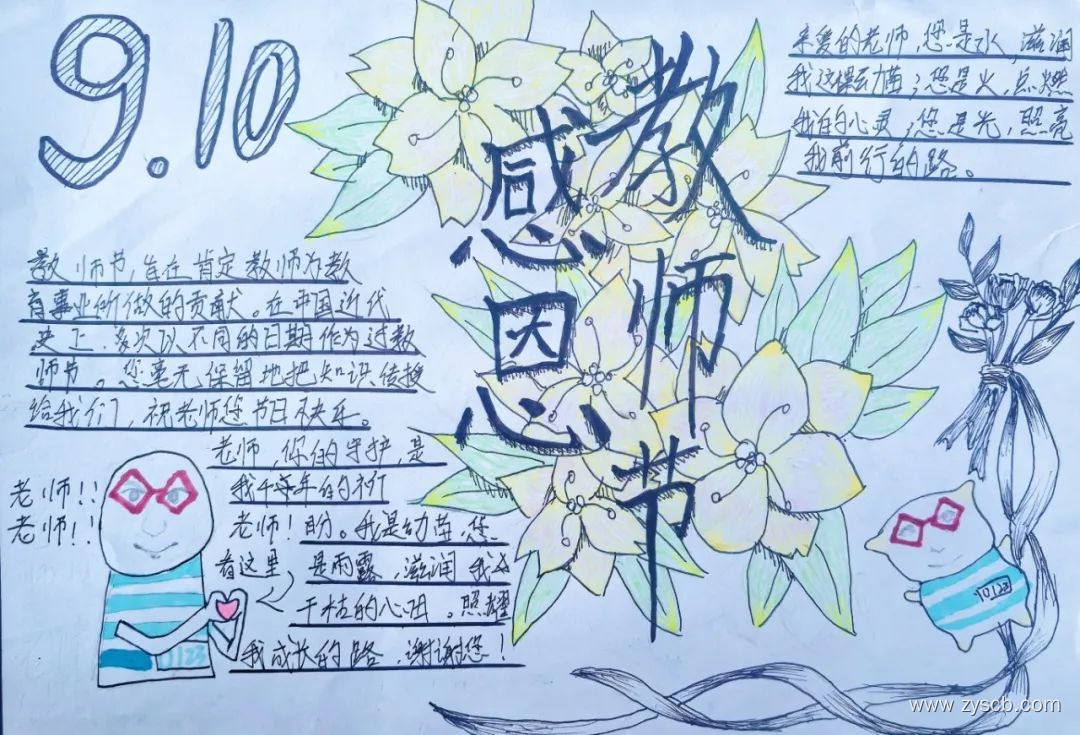 9.10
教师节
感恩
亲爱的老师,您是水,滋润
我这棵幼苗;您是火,点燃
我的心灵;您是光,照亮
我前行的路。
教师节,旨在肯定教师为教
育事业所做的贡献。在中国近代
史上,多次以不同的日期作为过教
师节。您毫无保留地把知识传授
给我们,祝老师您节日快乐。
老师,你的守护,是
我千年的祈
盼。我是幼苗,您
是雨露,滋润我
干枯的心田。照耀
我成长的路,谢谢您!
老师!!
老师!!
老师!
看这里
10123
10123
www.zyscb.com